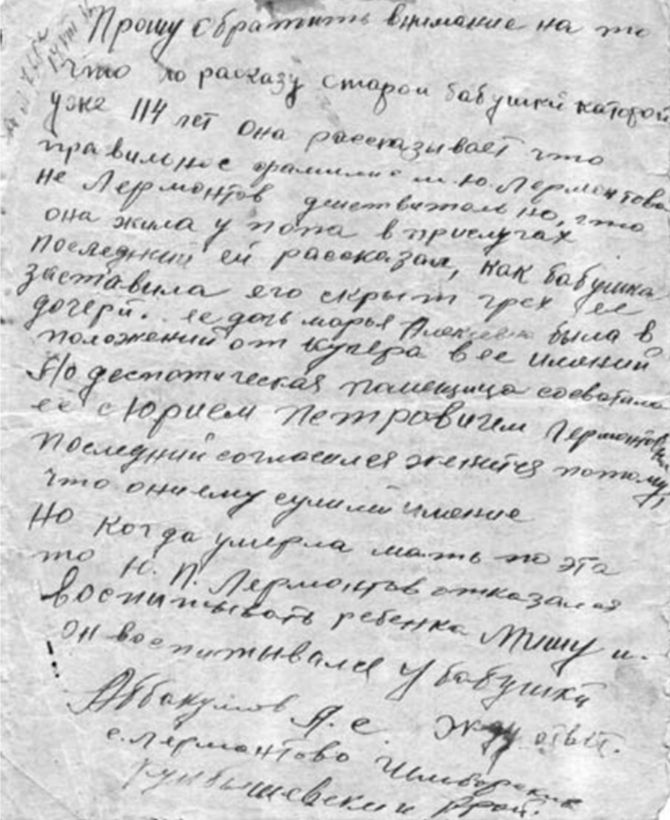 Прошу обратить внимание на то
что по расказу старой бабушки каторой
уже 114 лет она рассказывает что
правильнее фамилие м. ю. Лермонтова
не Лермонтов действительно, что
она жила у попа в прислугах
последний ей рассказал, как бабушка
заставила его скрыт грех ее
дочери. ее дочь марья Алексевна была в
положений от кучера в ее имений
деспотическая помещица сосватала
ее с Юрием Петровичем Лермонтов
последний согласился женится потому,
что они ему сулили имение
Но когда умерла мать поэта
то Ю. П. Лермонтов отказался
воспитывать ребенка Мишу и
он воспитывался у бабушки
Аббакумов А. Е. Жду ответ.
с. Лермонтово
Куйбышевский